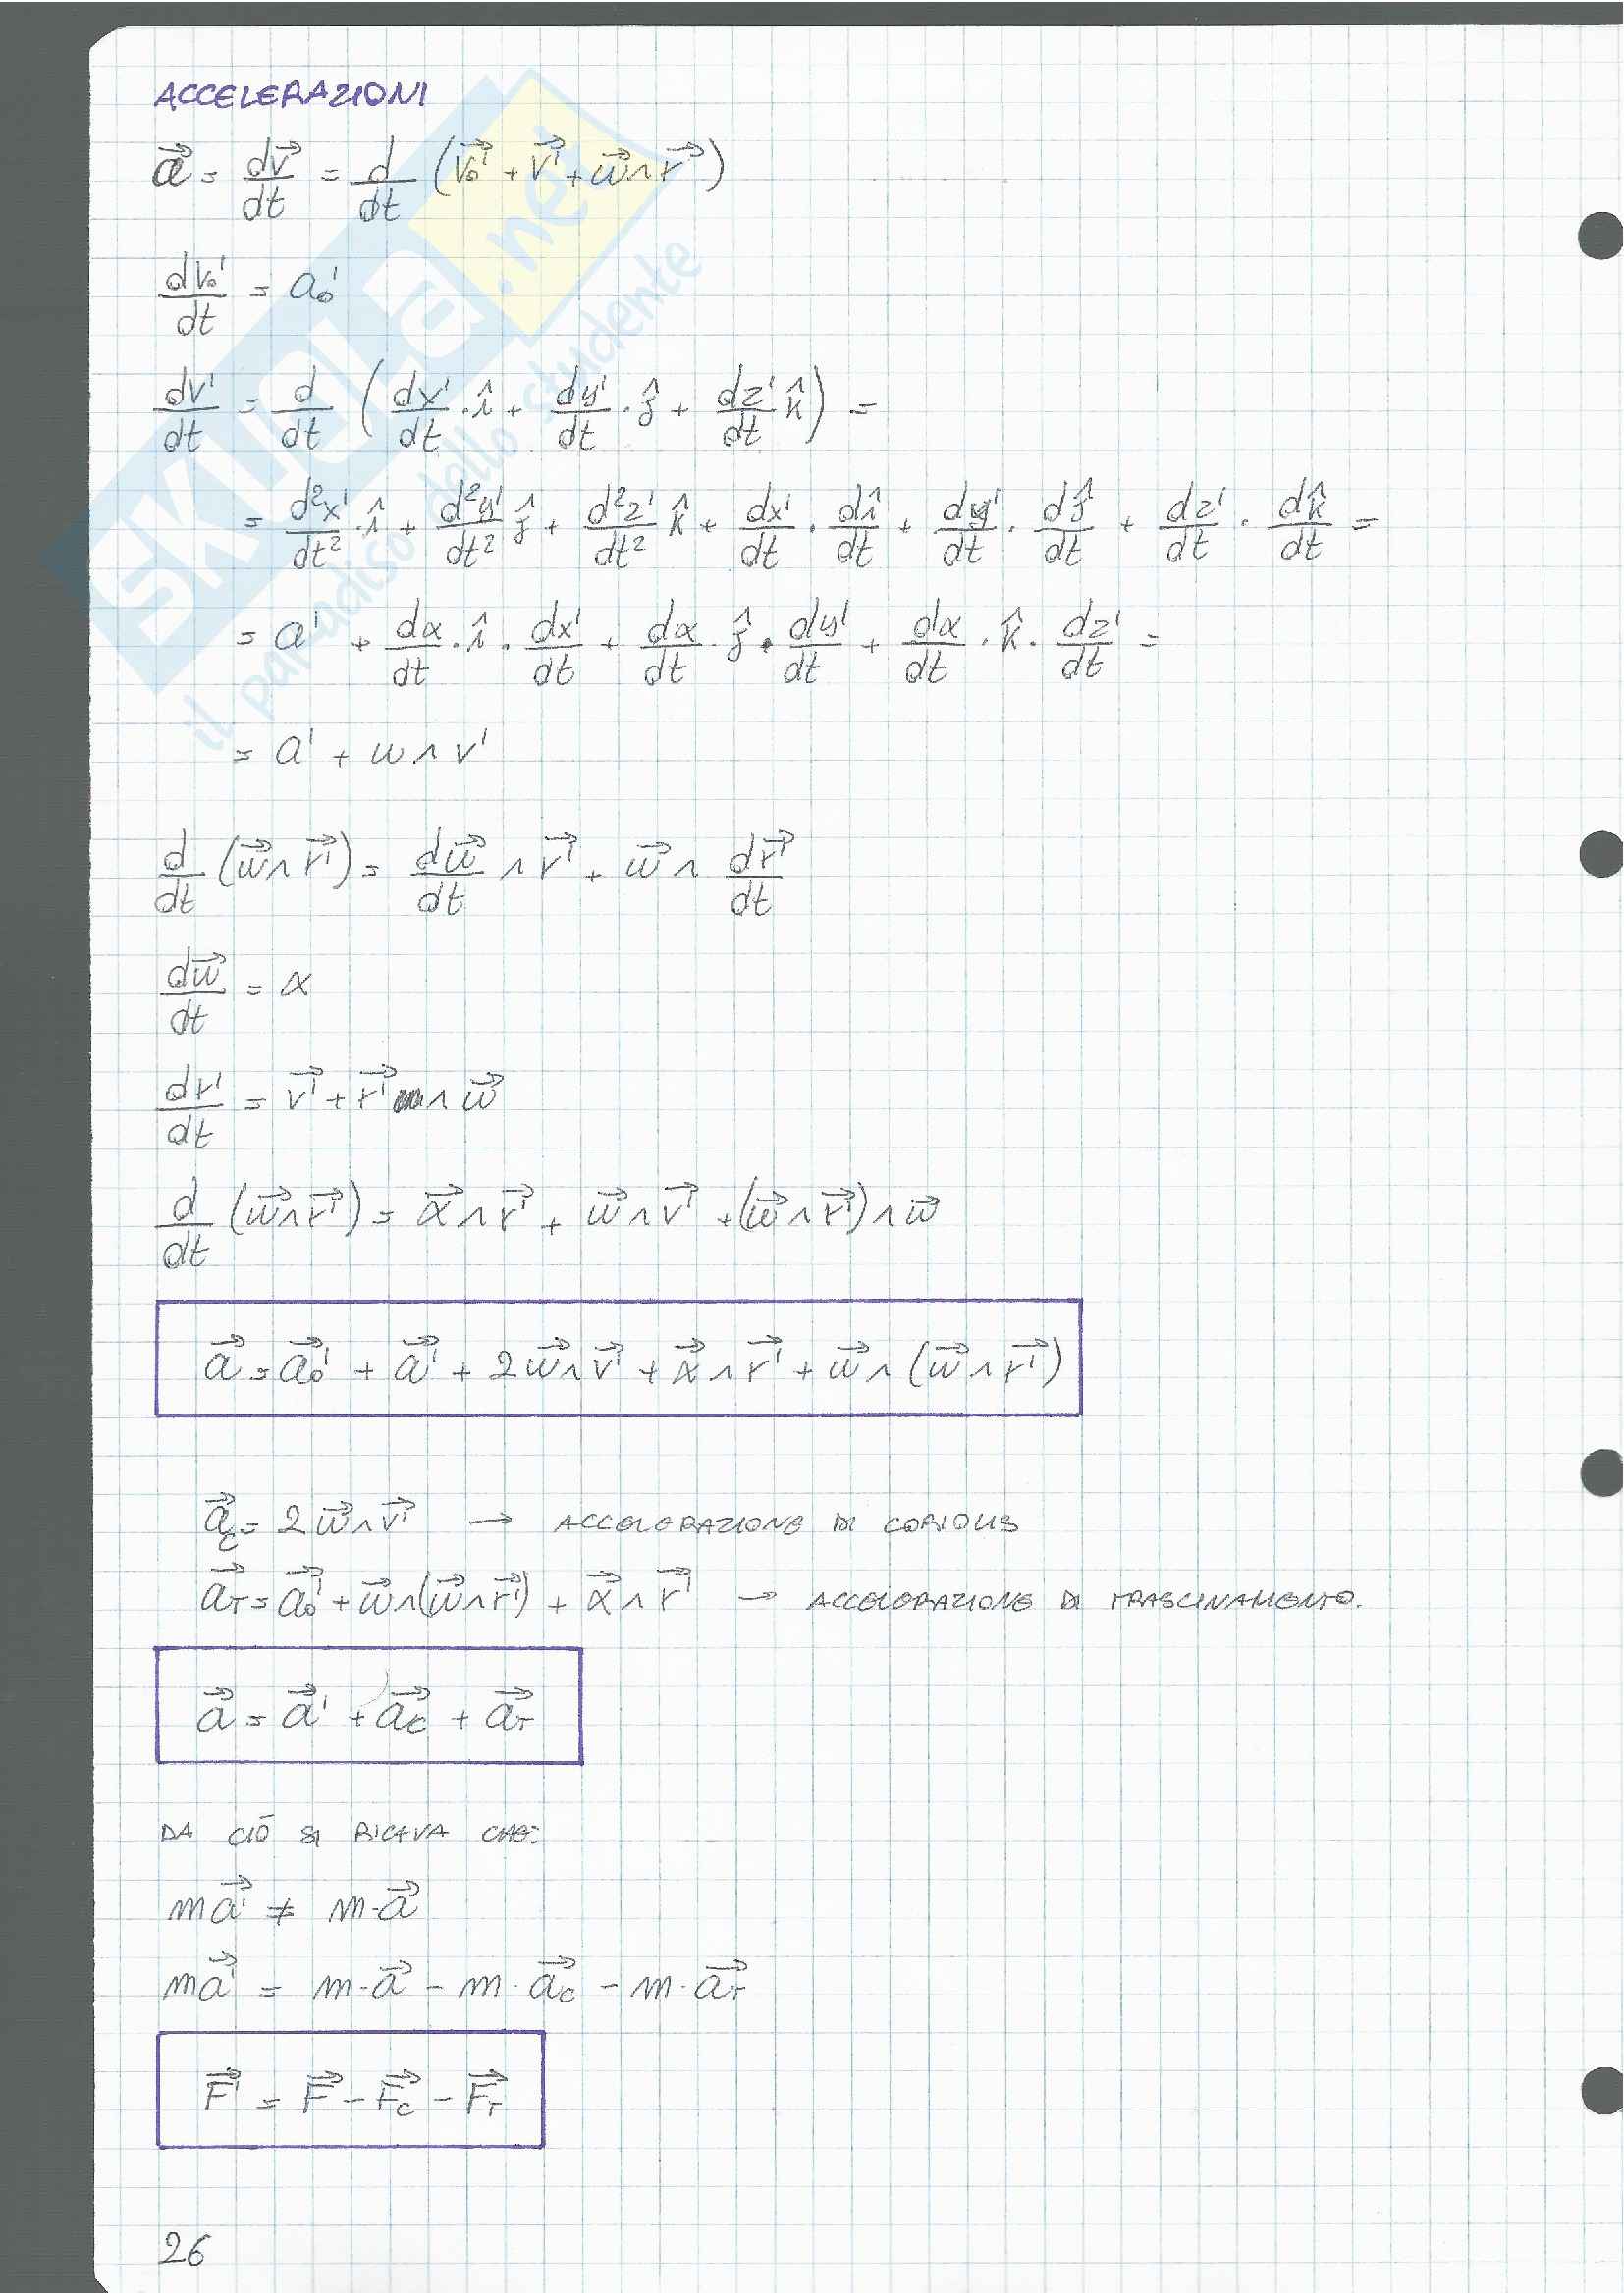 ACCELERAZIONI
a⃗ = dv⃗/dt = d/dt (v₀'⃗ + v'⃗ + w⃗ ∧ r'⃗)
dv₀'/dt = a₀'
dv'/dt = d/dt (dx'/dt · î + dy'/dt · ĵ + dz'/dt k̂) =
= d²x'/dt² · î + d²y'/dt² ĵ + d²z'/dt² k̂ + dx'/dt · dî/dt + dy'/dt · dĵ/dt + dz'/dt · dk̂/dt =
= a' + dα/dt · î · dx'/dt + dα/dt · ĵ · dy'/dt + dα/dt · k̂ · dz'/dt =
= a' + w ∧ v'
d/dt (w⃗ ∧ r'⃗) = dw⃗/dt ∧ r'⃗ + w⃗ ∧ dr'⃗/dt
dw⃗/dt = α
dr'/dt = v'⃗ + r'⃗ ∧ w⃗
d/dt (w⃗ ∧ r'⃗) = α⃗ ∧ r'⃗ + w⃗ ∧ v'⃗ + (w⃗ ∧ r'⃗) ∧ w⃗
a⃗ = a₀'⃗ + a'⃗ + 2w⃗ ∧ v'⃗ + α⃗ ∧ r'⃗ + w⃗ ∧ (w⃗ ∧ r'⃗)
a⃗c = 2w⃗ ∧ v'⃗ → ACCELERAZIONE DI CORIOLIS
a⃗T = a₀'⃗ + w⃗ ∧ (w⃗ ∧ r'⃗) + α⃗ ∧ r'⃗ → ACCELERAZIONE DI TRASCINAMENTO.
a⃗ = a'⃗ + a⃗c + a⃗T
DA CIÒ SI RICAVA CHE:
ma'⃗ ≠ m·a⃗
ma'⃗ = m·a⃗ - m·a⃗c - m·a⃗T
F'⃗ = F⃗ - F⃗c - F⃗T
26
SKUOLA.net
il paradiso dello studente